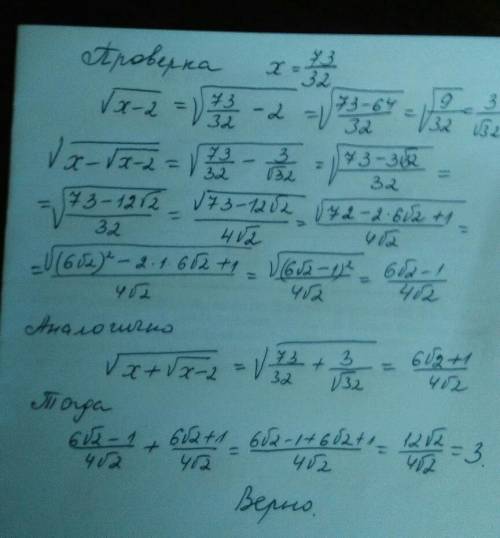 Проверка x = 73/32
√(x-2) = √(73/32 - 2) = √((73-64)/32) = √(9/32) = 3/√32
√(x-√(x-2)) = √(73/32 - 3/√32) = √((73-3√32)/32) =
= √((73-12√2)/32) = √(73-12√2)/(4√2) = √(72-2·6√2+1)/(4√2) =
= √((6√2)²-2·1·6√2+1)/(4√2) = √((6√2-1)²)/(4√2) = (6√2-1)/(4√2)
Аналогично
√(x+√(x-2)) = √(73/32 + 3/√32) = (6√2+1)/(4√2)
Тогда
(6√2-1)/(4√2) + (6√2+1)/(4√2) = (6√2-1+6√2+1)/(4√2) = 12√2/(4√2) = 3.
Верно.